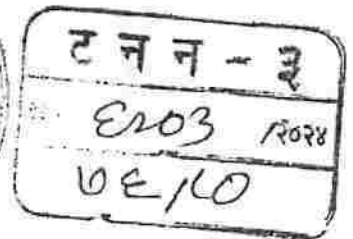 ट न न - ३
६२०३ /२०२४
७६/८०